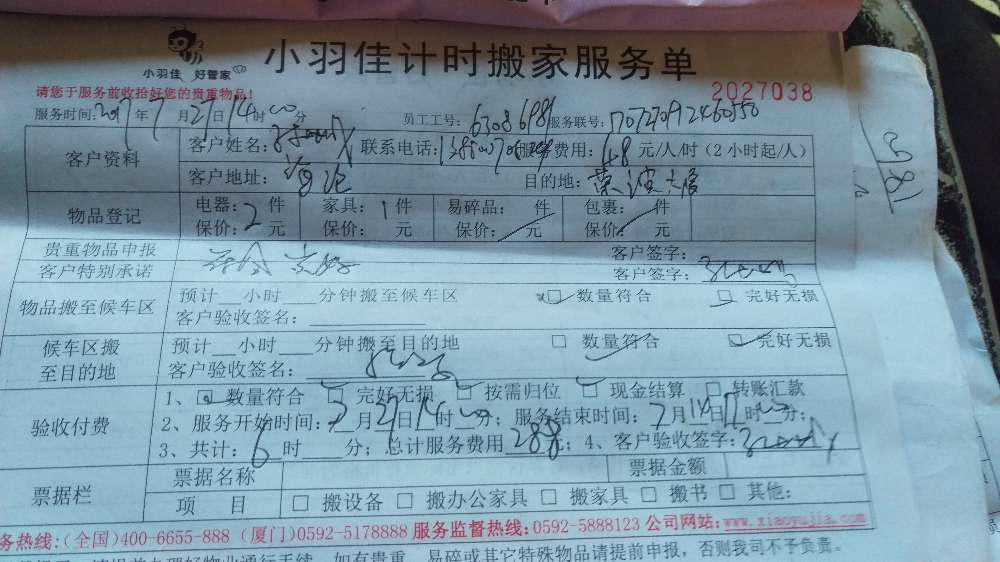 小羽佳 好管家
小羽佳计时搬家服务单
请您于服务前收拾好您的贵重物品!
2027038
服务时间: 2017年7月27日14时00 员工工号: 6308698 服务联号:
客户资料
客户姓名: 联系电话: 服务费用: 48元/人/时(2小时起/人)
客户地址: 目的地:
物品登记
电器: 2件 家具: 1件 易碎品: 件 包裹: 件
保价: 元 保价: 元 保价: 元 保价: 元
贵重物品申报 客户签字:
客户特别承诺 客户签字:
物品搬至候车区
预计__小时__分钟搬至候车区 数量符合 完好无损
客户验收签名:
候车区搬
至目的地
预计__小时__分钟搬至目的地 数量符合 完好无损
客户验收签名:
验收付费
1、 数量符合 完好无损 按需归位 现金结算 转账汇款
2、服务开始时间: 7月27日14时00分; 服务结束时间: 7月 日 时 分;
3、共计: 6时 分; 总计服务费用 288; 4、客户验收签字:
票据栏
票据名称 票据金额
项 目 搬设备 搬办公家具 搬家具 搬书 其他:
务热线:(全国)400-6655-888 (厦门)0592-5178888 服务监督热线: 0592-5888123 公司网站: www.xiaoyujia.com
易碎或其它特殊物品请提前申报, 否则我司不予负责。